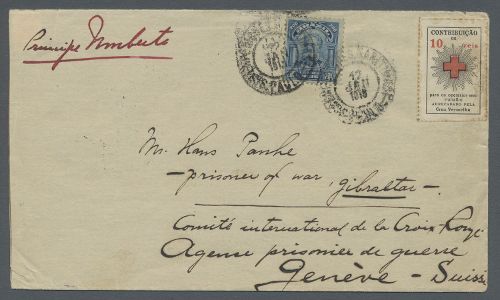 Principe Umberto
CONTRIBUIÇÃO
DE
10 reis
para os operarios sem
trabalho
ADMINISTRADO PELA
Cruz Vermelha
S. PAULO
1915
Mr. Hans Panhe
- prisoner of war, Gibraltar -
Comité international de la Croix Rouge
Agence prisonier de guerre
Genève - Suisse